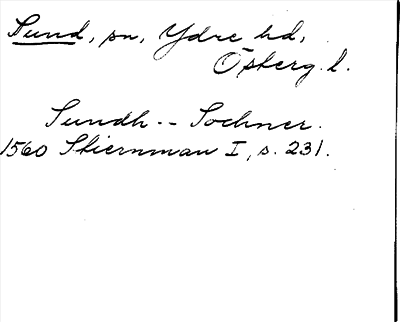 Sund, sn, Ydre hd,
Österg. l.
Sundh -- Sochner.
1560 Stiernman I, s. 231.